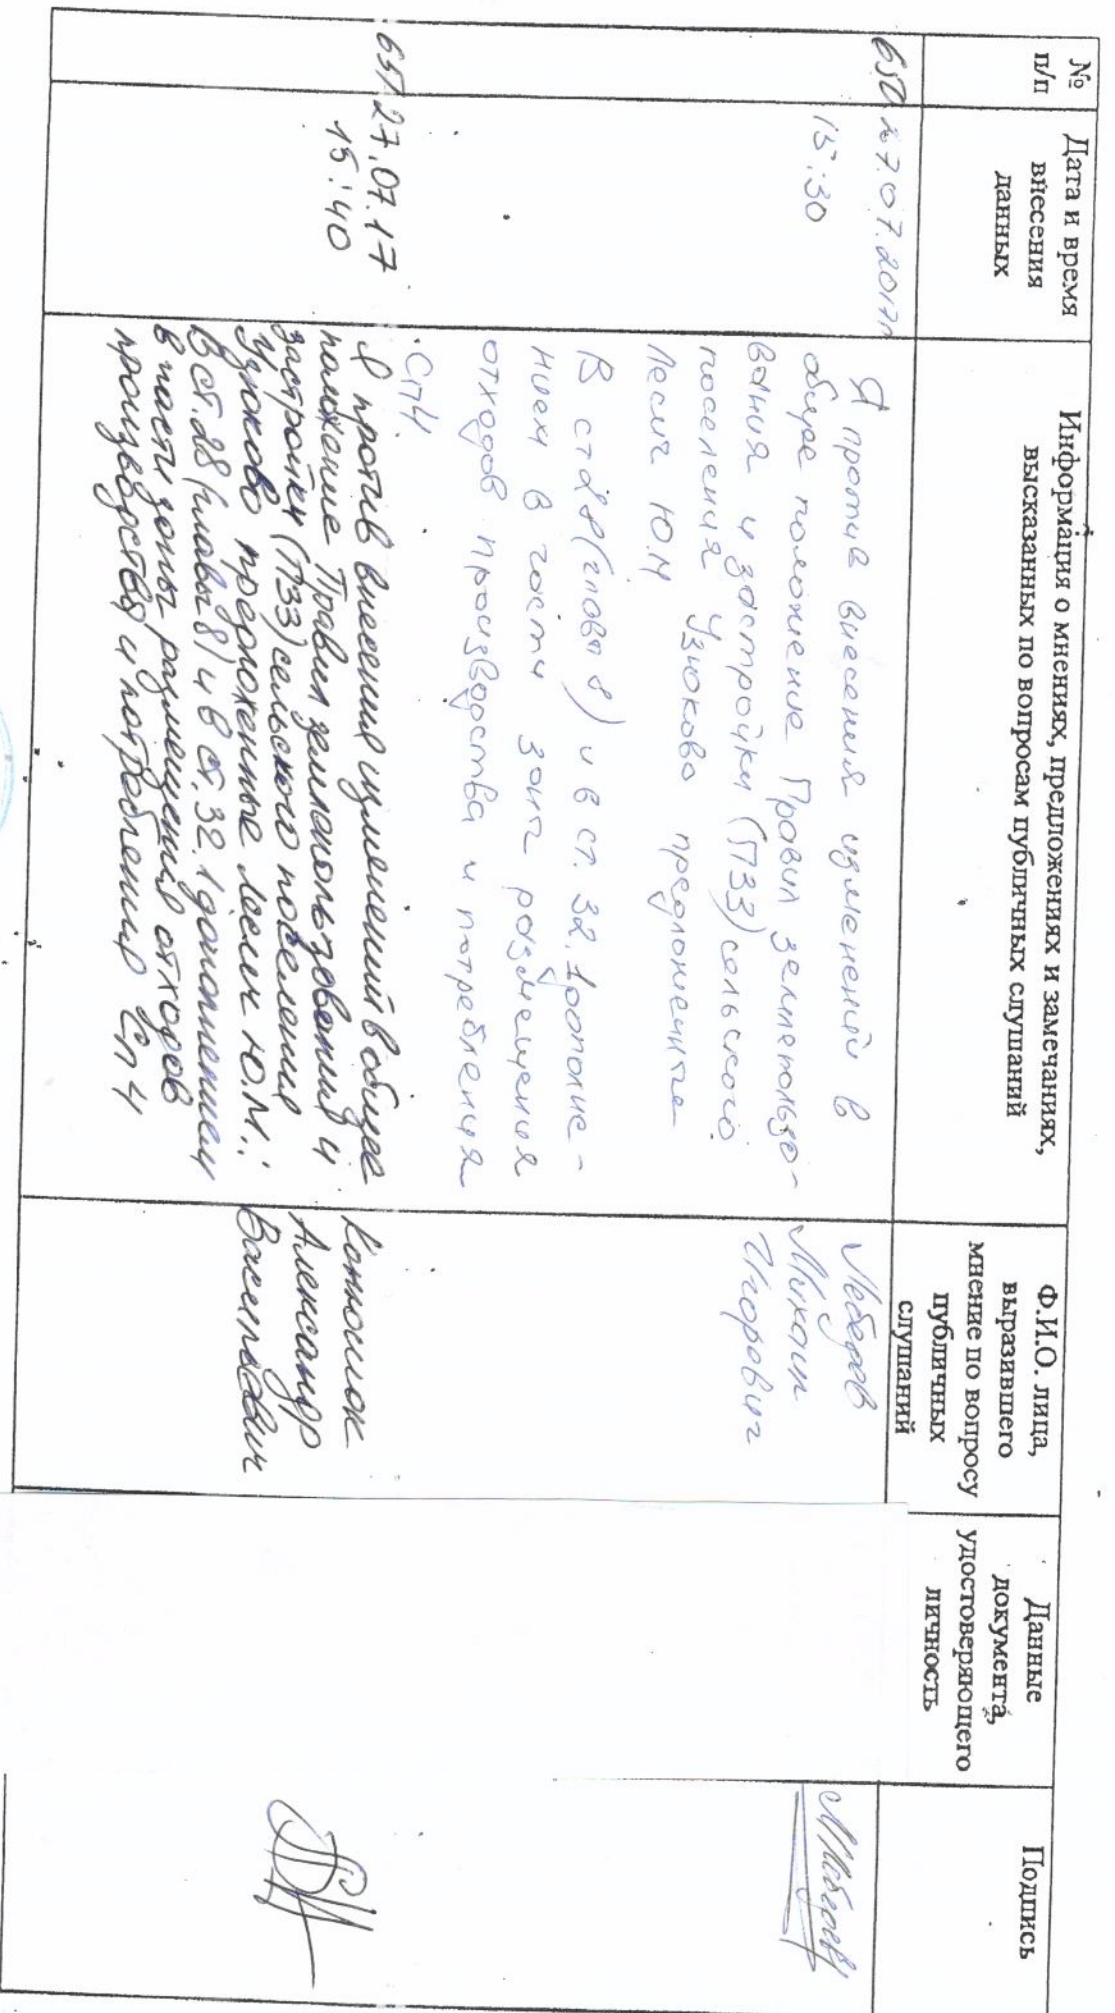 №
п/п
Дата и время
внесения
данных
Информация о мнениях, предложениях и замечаниях,
высказанных по вопросам публичных слушаний
Ф.И.О. лица,
выразившего
мнение по вопросу
публичных
слушаний
Данные
документа,
удостоверяющего
личность
Подпись
650
27.07.2017г
15:30
Я против внесения изменений в
общее положение Правил землепользо-
вания и застройки (ПЗЗ) сельского
поселения Узюково предложенные
Лесич Ю.М
В ст 28 (глава 8) и в ст. 32.1 дополне-
нием в части зоны размещения
отходов производства и потребления
Сп4.
Лебедев
Михаил
Игоревич
651
27.07.17
15:40
Я против внесения изменений в общее
положение Правил землепользования и
застройки (ПЗЗ) сельского поселения
Узюково предложенные Лесич Ю.М.:
В ст. 28 (главы 8) и в ст. 32.1 дополнением
в части зоны размещения отходов
производства и потребления Сп4
Александр
Васильевич